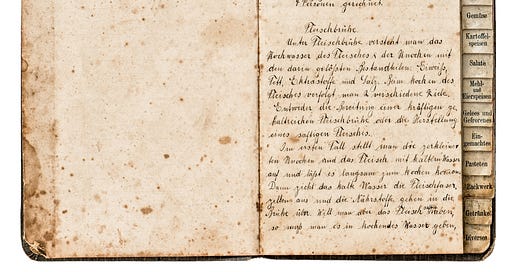 4 Personen gerechnet.
Fleischbrühe.
Unter Fleischbrühe versteht man das
Kochwasser des Fleisches & der Knochen mit
den darin gelösten Bestandteilen: Eiweiß,
Fett, Extraktstoffe und Salz. Beim Kochen des
Fleisches verfolgt man 2 verschiedene Ziele.
Entweder die Bereitung einer kräftigen ge-
haltreichen Fleischbrühe oder die Herstellung
eines saftigen Fleisches.
Im ersten Fall stellt man die zerkleiner-
ten Knochen und das Fleisch mit kaltem Wasser
auf und läßt es langsam zum Kochen kommen.
Dann zieht das kalte Wasser die Fleischfaser,
zellen aus und die Nährstoffe gehen in die
Brühe über. Will man aber das Fleisch
so muß man es in kochendes Wasser geben,
Gemüse
Kartoffel-
speisen
Salate
Mehl-
und
Eierspeisen
Gelees und
Gefrorenes
Ein-
gemachtes
Pasteten
Backwerk
Getränke
Diverses